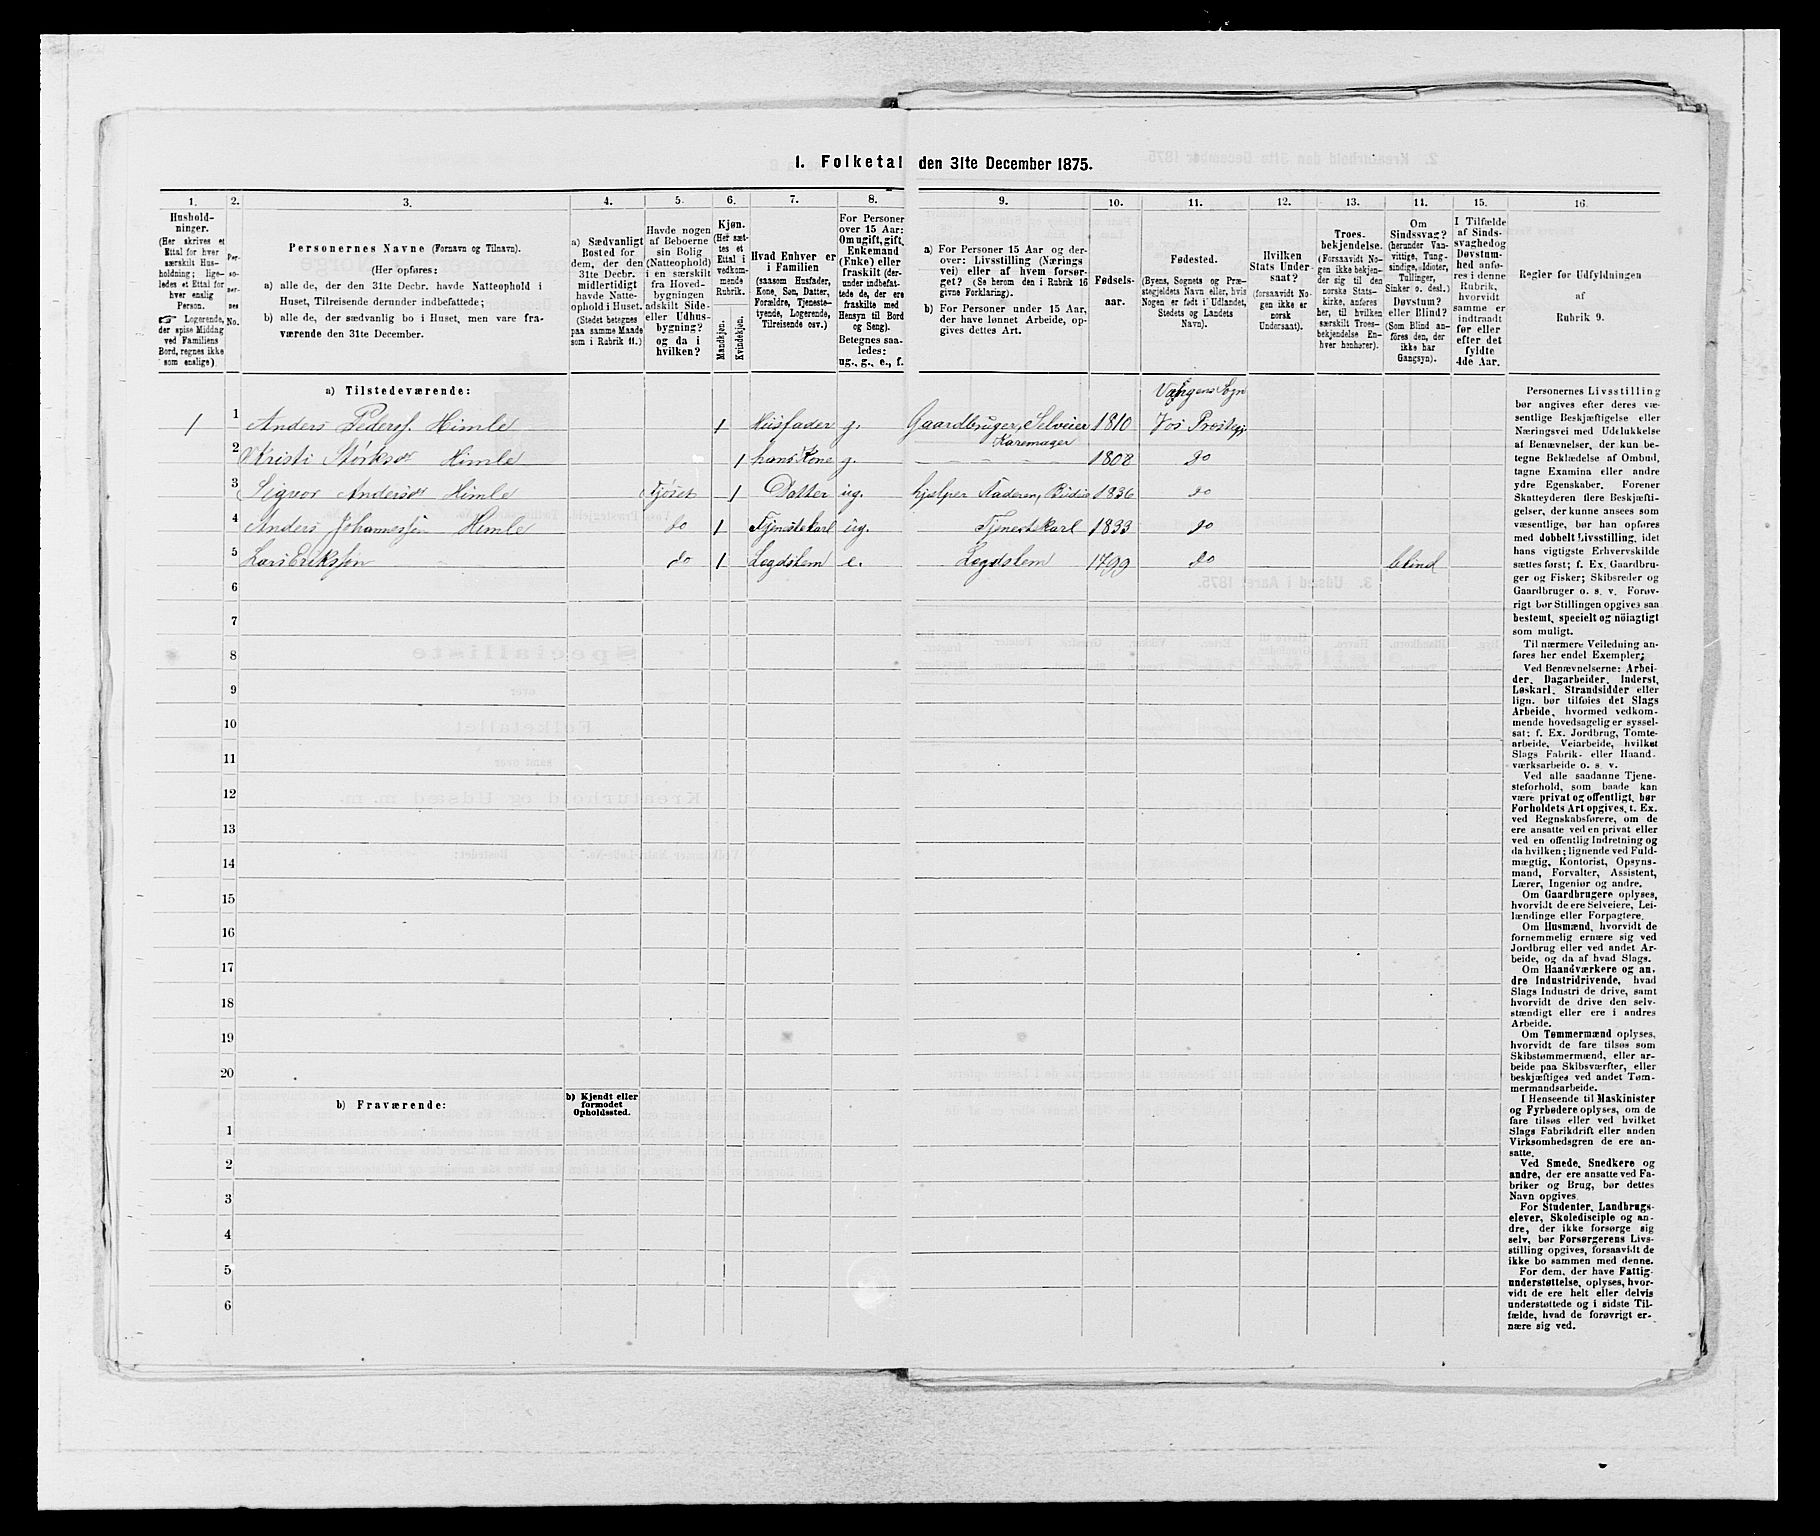 1. Folketal den 31te December 1875.
1.
2.
3.
4.
5.
6.
7.
8.
9.
10.
11.
12.
13.
11.
15.
16.
Hushold-
ninger.
(Her skrives et
Ettal for hver
særskilt Hus-
holdning; lige-
ledes et Ettal for
hver enslig
Person.
☞ Logerende,
der spise Middag
ved Familiens
Bord, regnes ikke
som enslige)
Per-
so-
ner-
nes
No.
Personernes Navne (Fornavn og Tilnavn).
(Her opføres:
a) alle de, der den 31te Decbr. havde Natteophold i
Huset, Tilreisende derunder indbefattede;
b) alle de, der sædvanlig bo i Huset, men vare fra-
værende den 31te December.
a) Sædvanligt
Bosted for
dem, der den
31te Decbr.
midlertidigt
havde Natte-
ophold i Huset.
(Stedet betegnes
paa samme Maade
som i Rubrik 11.)
Havde nogen
af Beboerne
sin Bolig
(Natteophold)
i en særskilt
fra Hoved-
bygningen
adskilt Side-
eller Udhus-
bygning?
og da i
hvilken?
Kjøn.
(Her sæt-
tes et
Ettal i
vedkom-
mende
Rubrik.
Mandkjøn.
Kvindekjøn.
Hvad Enhver er
i Familien
(saasom Husfader,
Kone, Søn, Datter,
Forældre, Tjeneste-
tyende, Logerende,
Tilreisende osv.)
For Personer
over 15 Aar:
Om ugift, gift,
Enkemand
(Enke) eller
fraskilt (der-
under indbefat-
tede de, der ere
fraskilte med
Hensyn til Bord
og Seng).
Betegnes saa-
ledes:
ug., g., e., f.
a) For Personer 15 Aar og der-
over: Livsstilling (Nærings
vei) eller af hvem forsør-
get? (Se herom den i Rubrik 16
givne Forklaring).
b) For Personer under 15 Aar,
der have lønnet Arbeide, op-
gives dettes Art.
Fødsels-
aar.
Fødested.
(Byens, Sognets og Præ-
stegjeldets Navn eller, hvis
Nogen er født i Udlandet,
Stedets og Landets
Navn).
Hvilken
Stats Under-
saat?
(forsaavidt No-
gen ikke er
norsk
Undersaat).
Troes-
bekjendelse.
(Forsaavidt No-
gen ikke bekjen-
der sig til den
norske Stats-
kirke, anføres
her, til hvilken
særskilt Troes-
bekjendelse En-
hver henhører).
Om
Sindssvag?
(herunder Van-
vittige, Tung-
sindige, Idioter,
Tullinger,
Sinker o. desl.)
Døvstum?
eller Blind?
(Som Blind an-
føres den, der
ikke har
Gangsyn).
I Tilfælde
af Sinds-
svaghed og
Døvstum-
hed anfø-
res i denne
Rubrik,
hvorvidt
samme er
indtraadt
før eller
efter det
fyldte
4de Aar.
Regler før Udfyldningen
af
Rubrik 9.
a) Tilstedeværende:
Vangens Sogn
1 1 Anders Peders. Himle 1 Husfader g. Gaardbruger, Selveier 1810 Vos Prestegj
Karemager
2 Kristi Himle 1 hans Kone g. 1808 do
3 Himle Fjøset 1 Datter ug. hjelper Faderen, Budeie 1836 do
4 Anders Johannessen Himle do 1 Tjenestekarl ug. Tjenestekarl 1833 do
5 Lars Eriksen do 1 Legdslem e. Legdslem 1799 do blind
6
7
8
9
10
11
12
13
14
15
16
17
18
19
20
b) Fraværende:
b) Kjendt eller
formodet
Opholdssted.
1
2
3
4
5
6
Personernes Livsstilling
bør angives efter deres væ-
sentlige Beskjæftigelse eller
Næringsvei med Udelukkelse
af Benævnelser, der kun be-
tegne Beklædelse af Ombud,
tagne Examina eller andre
ydre Egenskaber. Forener
Skatteyderen flere Beskjæfti-
gelser, der kunne ansees som
væsentlige, bør han opføres
med dobbelt Livsstilling, idet
hans vigtigste Erhvervskilde
sættes først; f. Ex. Gaardbru-
ger og Fisker; Skibsreder og
Gaardbruger o. s. v. Forøv-
rigt bør Stillingen opgives saa
bestemt, specielt og nöiagtigt
som muligt.
Til nærmere Veiledning an-
føres her endel Exempler;
Ved Benævnelserne: Arbei-
der, Dagarbeider, Inderst,
Løskarl, Strandsidder eller
lign. bør tilføies det Slags
Arbeide, hvormed vedkom-
mende hovedsagelig er syssel-
sat; f. Ex. Jordbrug, Tomte-
arbeide, Veiarbeide, hvilket
Slags Fabrik- eller Haand-
værksarbeide o. s. v.
Ved alle saadanne Tjene-
steforhold, som baade kan
være privat og offentligt, bør
Forholdets Art opgives, t. Ex.
ved Regnskabsførere, om de
ere ansatte ved en privat eller
ved en offentlig Indretning og
da hvilken; lignende ved Fuld-
mægtig, Kontorist, Opsyns-
mand, Forvalter, Assistent,
Lærer, Ingeniør og andre.
Om Gaardbrugere oplyses,
hvorvidt de ere Selveiere, Lei-
lændinge eller Forpagtere.
Om Husmænd, hvorvidt de
fornemmelig ernære sig ved
Jordbrug eller ved andet Ar-
beide, og da af hvad Slags.
Om Haandværkere og an,
dre Industridrivende, hvad
Slags Industri de drive, samt
hvorvidt de drive den selv-
stændigt eller ere i andres
Arbeide.
Om Tømmermænd oplyses,
hvorvidt de fare tilsøs som
Skibstømmermænd, eller ar-
beide paa Skibsværfter, eller
beskjæftiges ved andet Tøm-
mermandsarbeide.
I Henseende til Maskinister
og Fyrbødere oplyses, om de
fare tilsøs eller ved hvilket
Slags Fabrikdrift eller anden
Virksomhedsgren de ere an-
satte.
Ved Smede, Snedkere og
andre, der ere ansatte ved Fa-
briker og Brug, bør dettes
Navn opgives.
For Studenter, Landbrugs-
elever, Skoledisciple og an-
dre, der ikke forsørge sig
selv, bør Forsørgerens Livs-
stilling opgives, forsaavidt de
ikke bo sammen med denne.
For dem, der have Fattig-
understøttelse, oplyses, hvor-
vidt de ere helt eller delvis
understøttede og i sidste Til-
fælde, hvad de forøvrigt er-
nære sig ved.